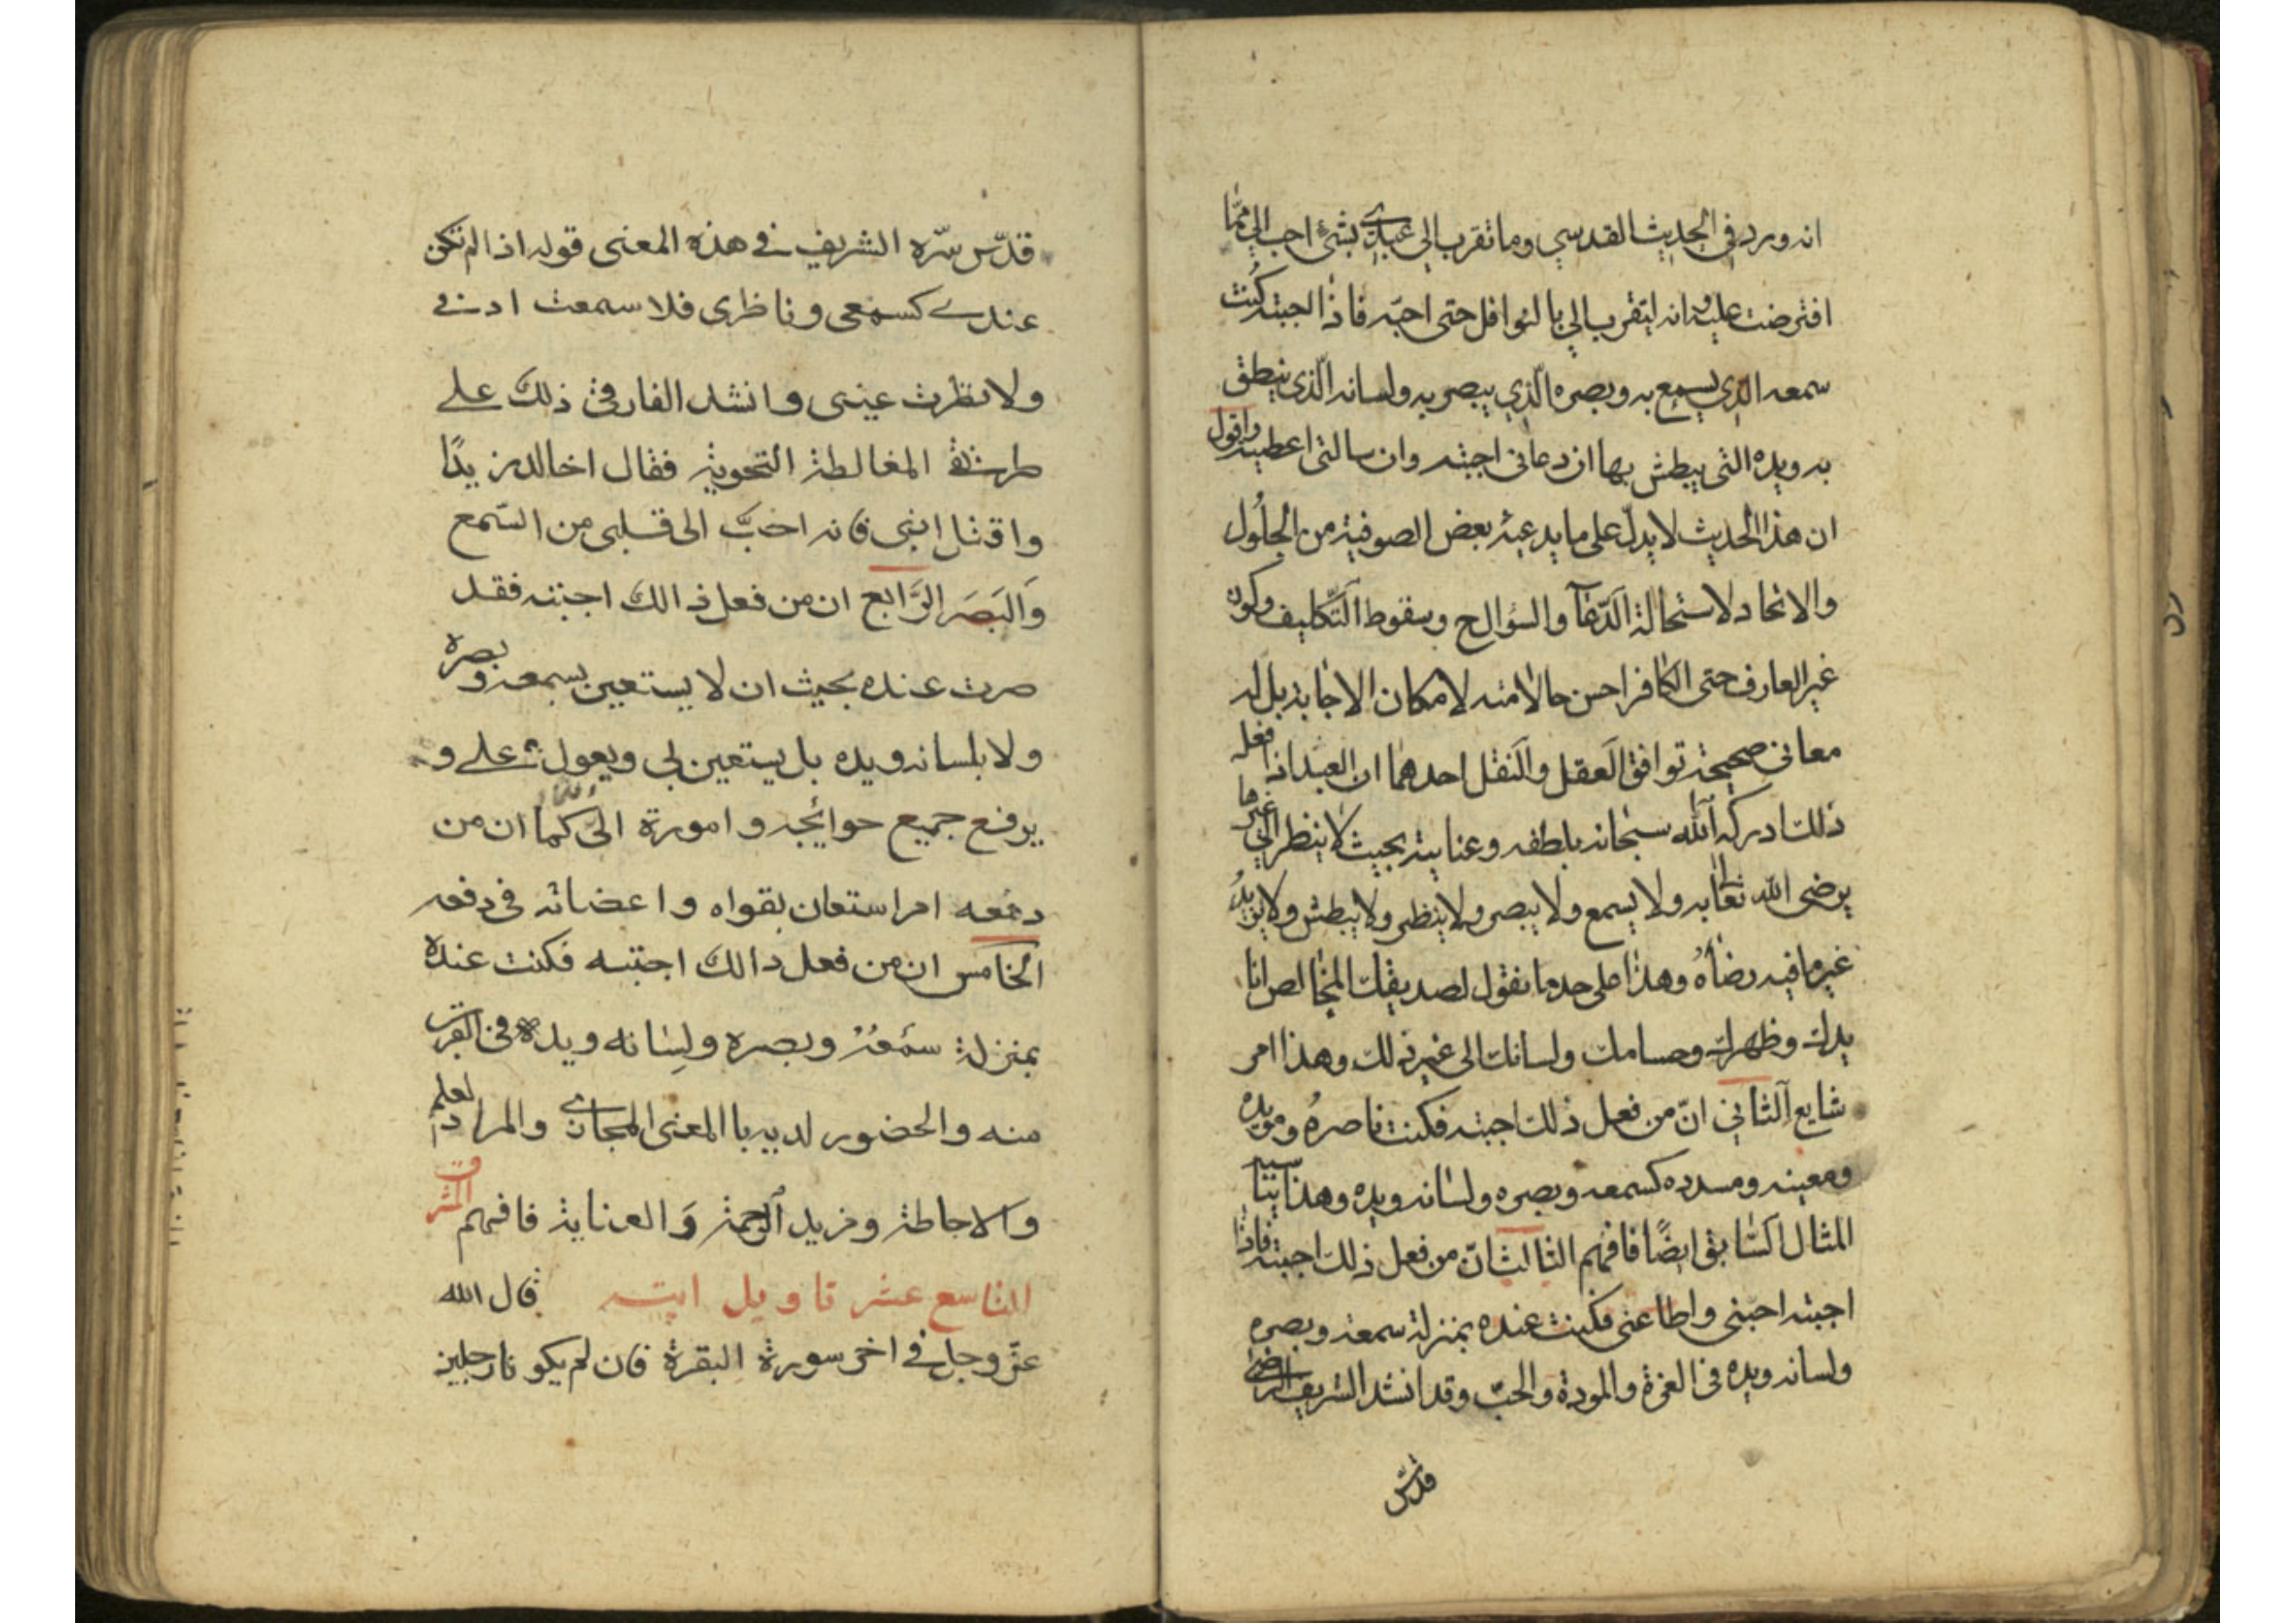 انه ورد في الحديث القدسي وما تقرب الي عبدي بشئ احب الي ممّا
افترضت عليه وانه ليتقرب الي بالنوافل حتى احبّه فاذا احببته كُنت
سمعه الذي يسمع به وبصره الّذي يبصر به ولسانه الّذي ينطق
به ويده التى يبطش بها ان دعانى اجبته وان سالتى اعطيته واقول
ان هذا الحديث لا يدلّ على ما يدعيه بعض الصوفية من الحلُول
والاتحاد لاستحالة الدّعآ والسؤال ح وسقوط التّكليف وكون
غير العارف حتى الكافر احسن حالا منه لامكان الاجابة بل له
معانى صحيحة توافق العقل والنقل احدهما ان العبد اذا فعله
ذلك ادركه الله سبحانه بلطفه وعنايته بحيث لا ينظر الي غير ما
يرضى الله تعالى به ولا يسمع ولا يبصر ولا ينظر ولا يبطش ولا يريدُ
غير ما فيه رضاهُ وهذا على حد ما تقول لصديقك المخالص انا
يدك وظهرك وحسامك ولسانك الى غير ذلك وهذا امر
شايع الثاني انّ من فعل ذلك اجبته فكنت ناصرهُ ومويده
ومعينه ومسدده كسمعه وبصره ولسانه ويده وهذا يناسب
المثال السّابق ايضًا فافهم الثالث انّ من فعل ذلك اجبته فاذا
اجبته احبنى واطاعنى فكنت عنده بمنزلة سمعه وبصره
ولسانه ويده فى العزة والمودة والحبّ وقد انشد الشريف الرضى
قدّس
قدّس سّره الشريف في هذه المعنى قوله اذا لم تكن
عندي كسمعى وناظرى فلا سمعت اذني
ولا نظرت عينى وانشد الفارقى ذلك على
طريقة المغالطة النحوية فقال اخالد زيدًا
واقتل ابنى فانه احبَّ الى قلبى من السّمع
وَالبَصَر الرَّابع ان من فعل ذالك اجبته فقد
صرت عنده بحيث ان لا يستعين بسمعه وبصره
ولا بلسانه ويده بل يستعين بى ويعول على و
يرفع جميع حوائجه واموره الىّ كما ان من
دهمه امر استعان بقواه واعضائه فى دفعه
الخامس ان من فعل دالك اجتبه فكنت عنده
بمنزلة سمعهُ وبصره ولِسَانه ويده فى القرب
منه والحضور لديه با المعنى المجازي والمراد العلم
والاحاطة ومزيد الرحمة وَالعناية فافهم الشرق
التاسع عشر تاويل اية قال الله
عزّ وجل في اخر سورة البقرة فان لم يكونا رجلين